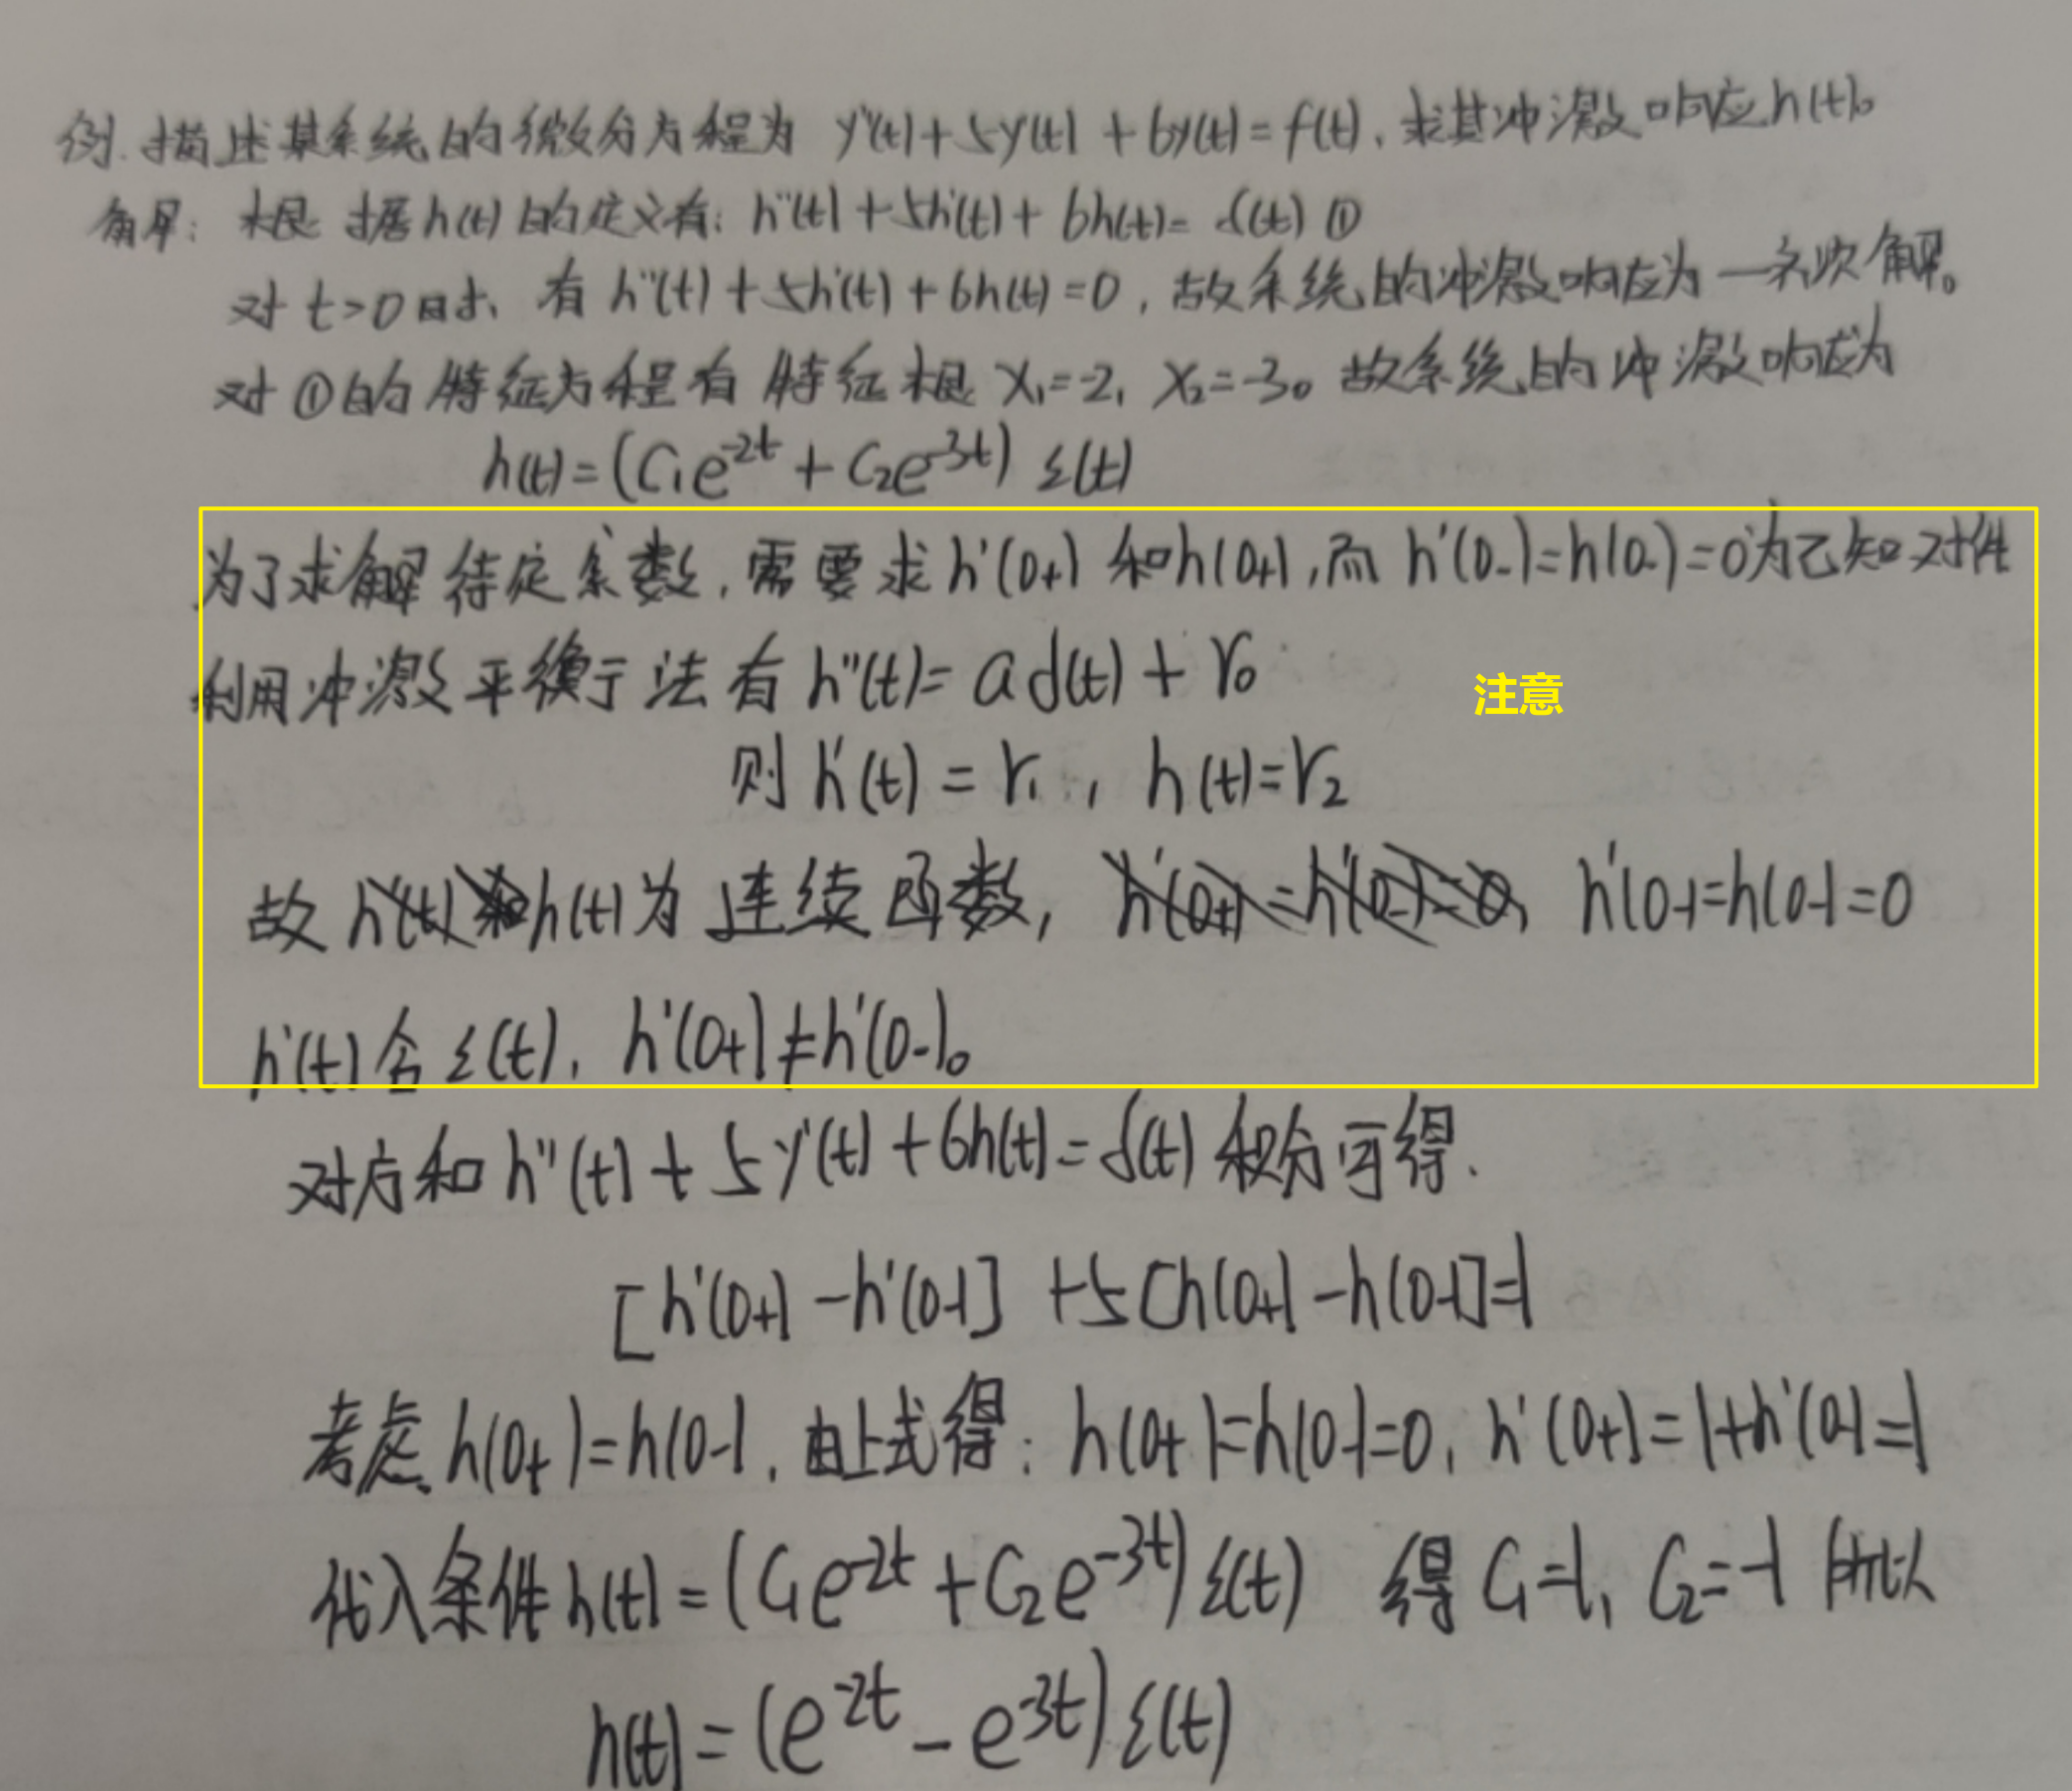 例. 描述某系统的微分方程为 y''(t)+5y'(t)+6y(t)=f(t), 求其冲激响应h(t)。
解: 根据h(t)的定义有: h''(t)+5h'(t)+6h(t)=δ(t) ①
对 t>0时, 有 h''(t)+5h'(t)+6h(t)=0, 故系统的冲激响应为一齐次解。
对①的特征方程有特征根 x₁=-2, x₂=-3。故系统的冲激响应为
h(t)=(C₁e^{-2t}+C₂e^{-3t}) ε(t)
为了求解待定系数, 需要求h'(0+)和h(0+), 而 h'(0-)=h(0-)=0为已知
利用冲激平衡法有 h''(t)= aδ(t) + r₀
注意
则 h'(t) = r₁, h(t)=r₂
故 h(t)为连续函数, h'(0-)=h(0-)=0
h'(t)含ε(t), h'(0+)≠h'(0-)。
对方和 h''(t)+5y'(t)+6h(t)=δ(t) 积分可得.
[h'(0+)-h'(0-)] +5[h(0+)-h(0-)]=1
考虑 h(0+)=h(0-), 由上式得: h(0+)=h(0-)=0, h'(0+)=1+h'(0-)=1
代入条件 h(t)=(C₁e^{-2t}+C₂e^{-3t})ε(t) 得 C₁=1, C₂=-1 所以
h(t)=(e^{-2t}-e^{-3t})ε(t)